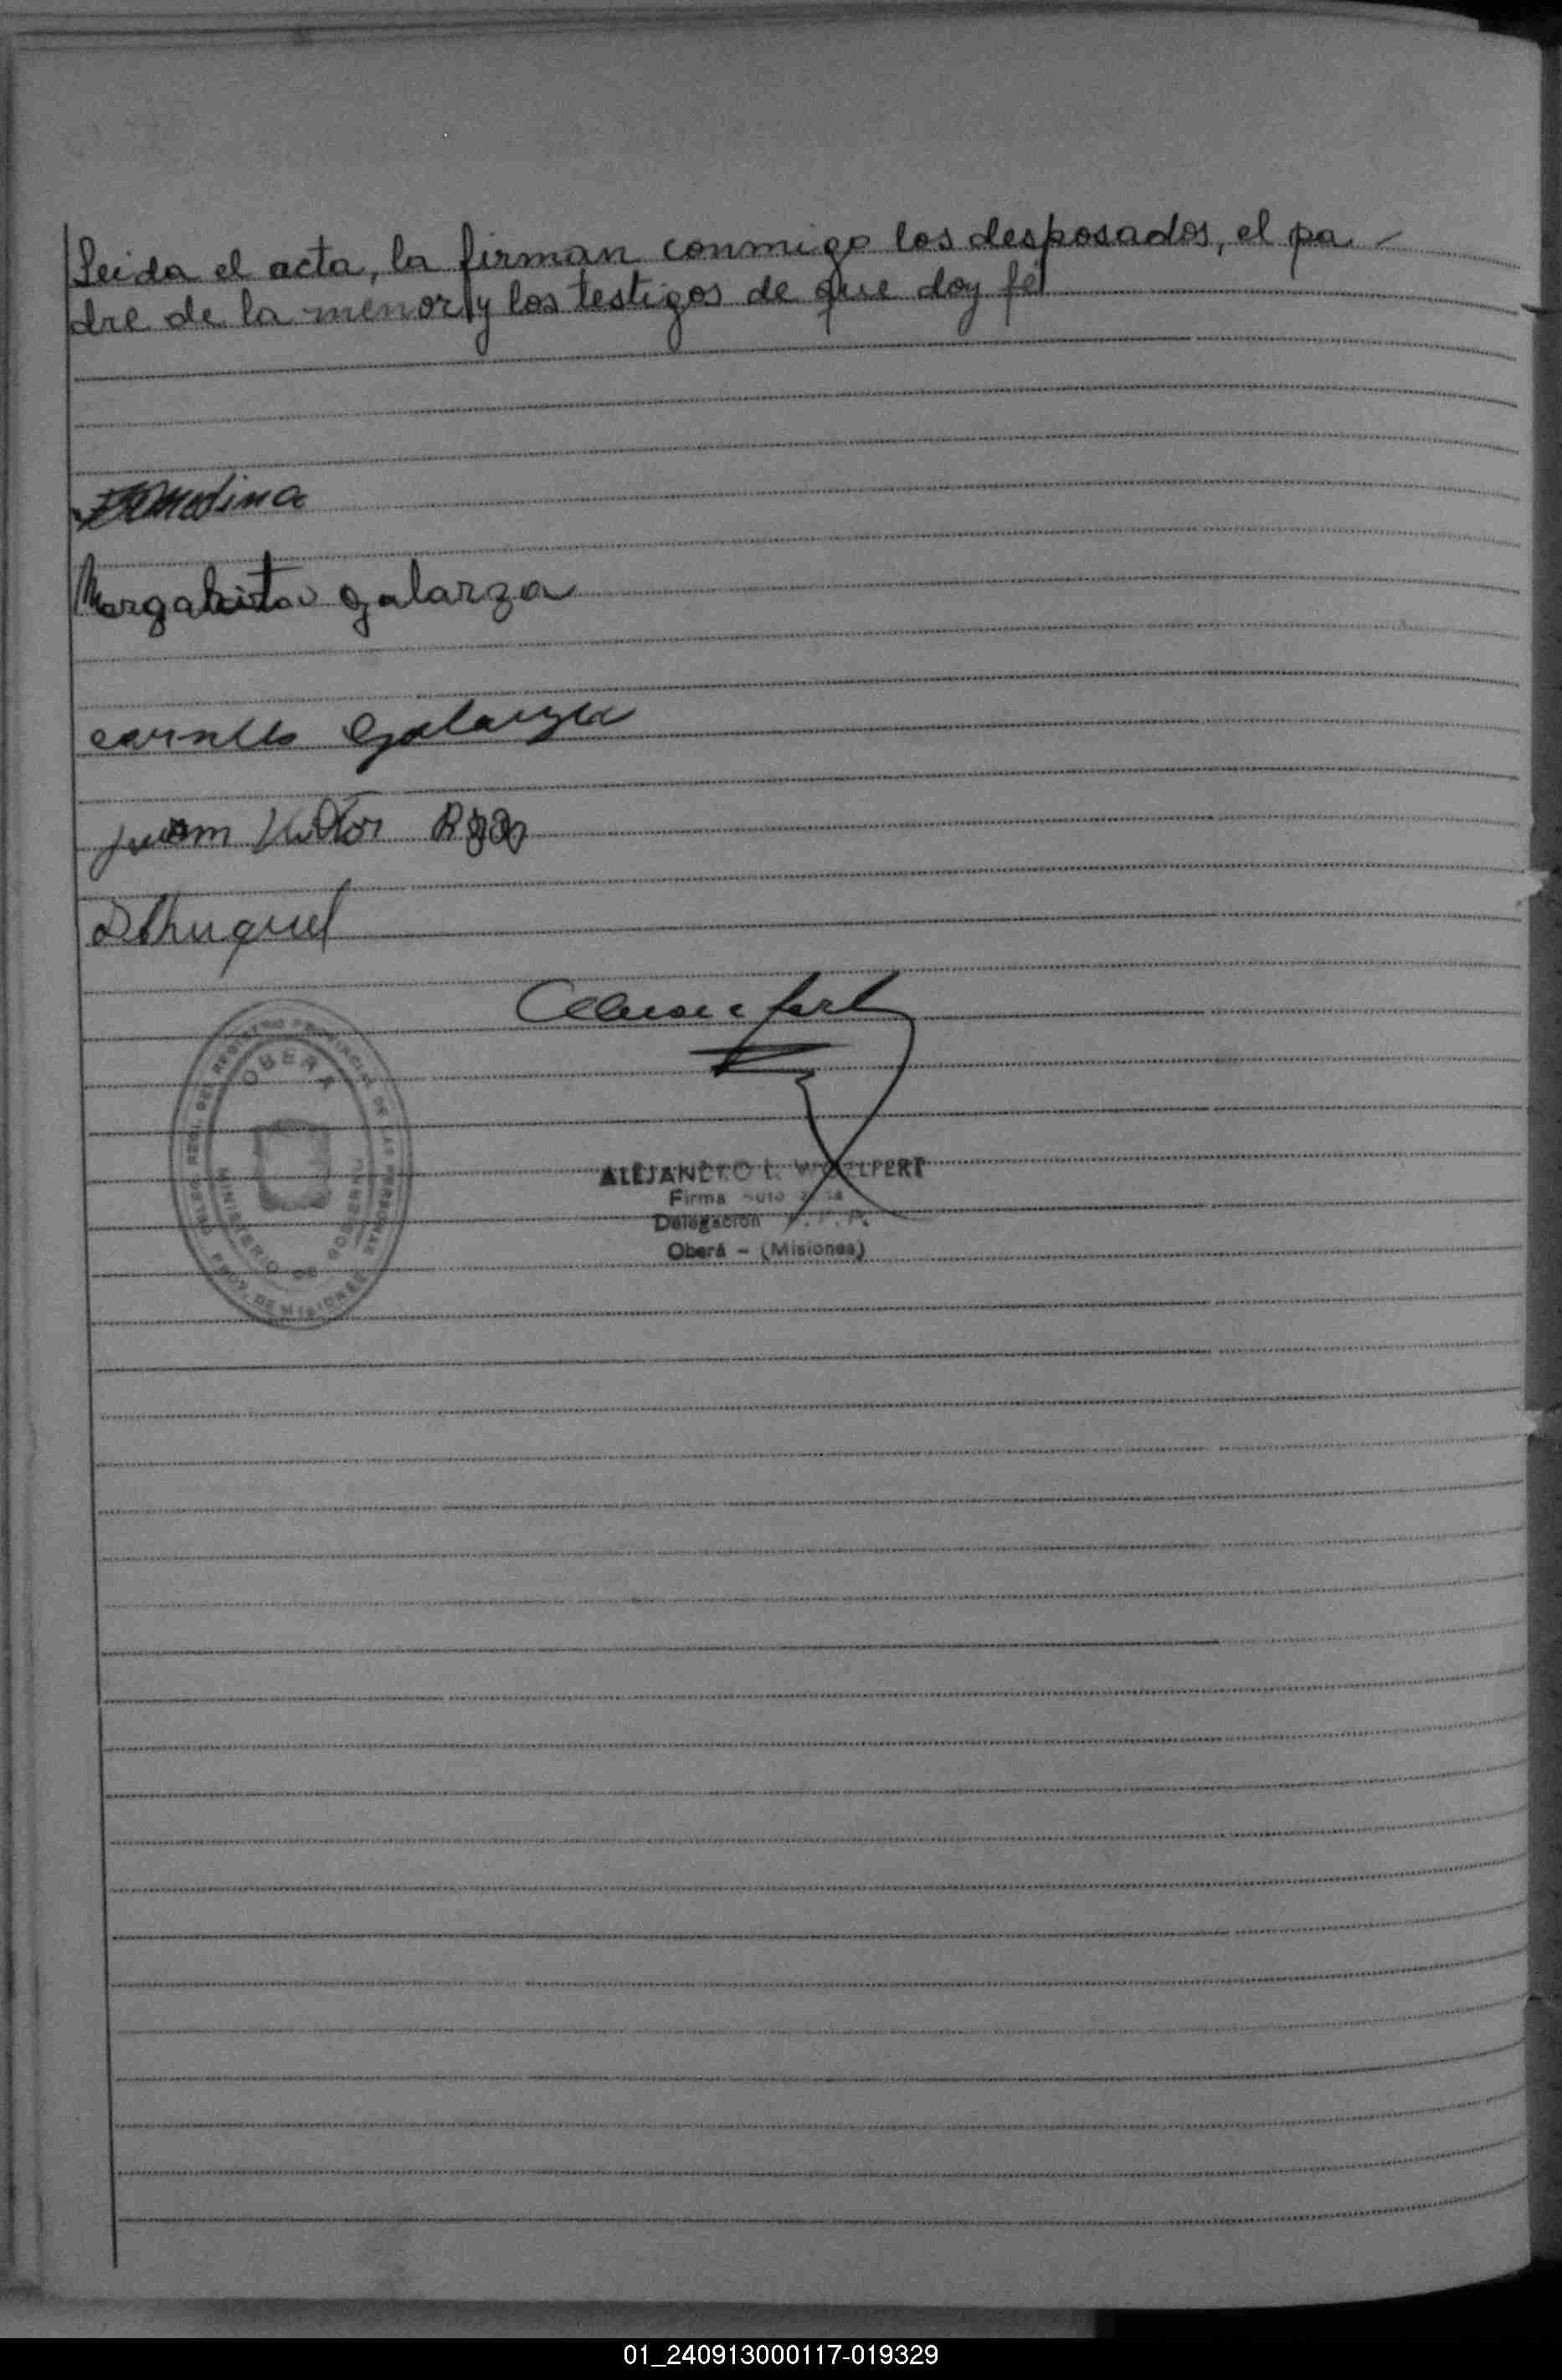 Leida el acta, la firman conmigo los desposados, el pa-
dre de la menor y los testigos de que doy fé
Medina
Margarita galarza
galarza
Juan Victor
OBERA
MINISTERIO DE GOBIERNO
PROV. DE MISIONES
ALEJANDRO L. WOELFERT
Firma
Delegación
Oberá - (Misiones)
01_240913000117-019329